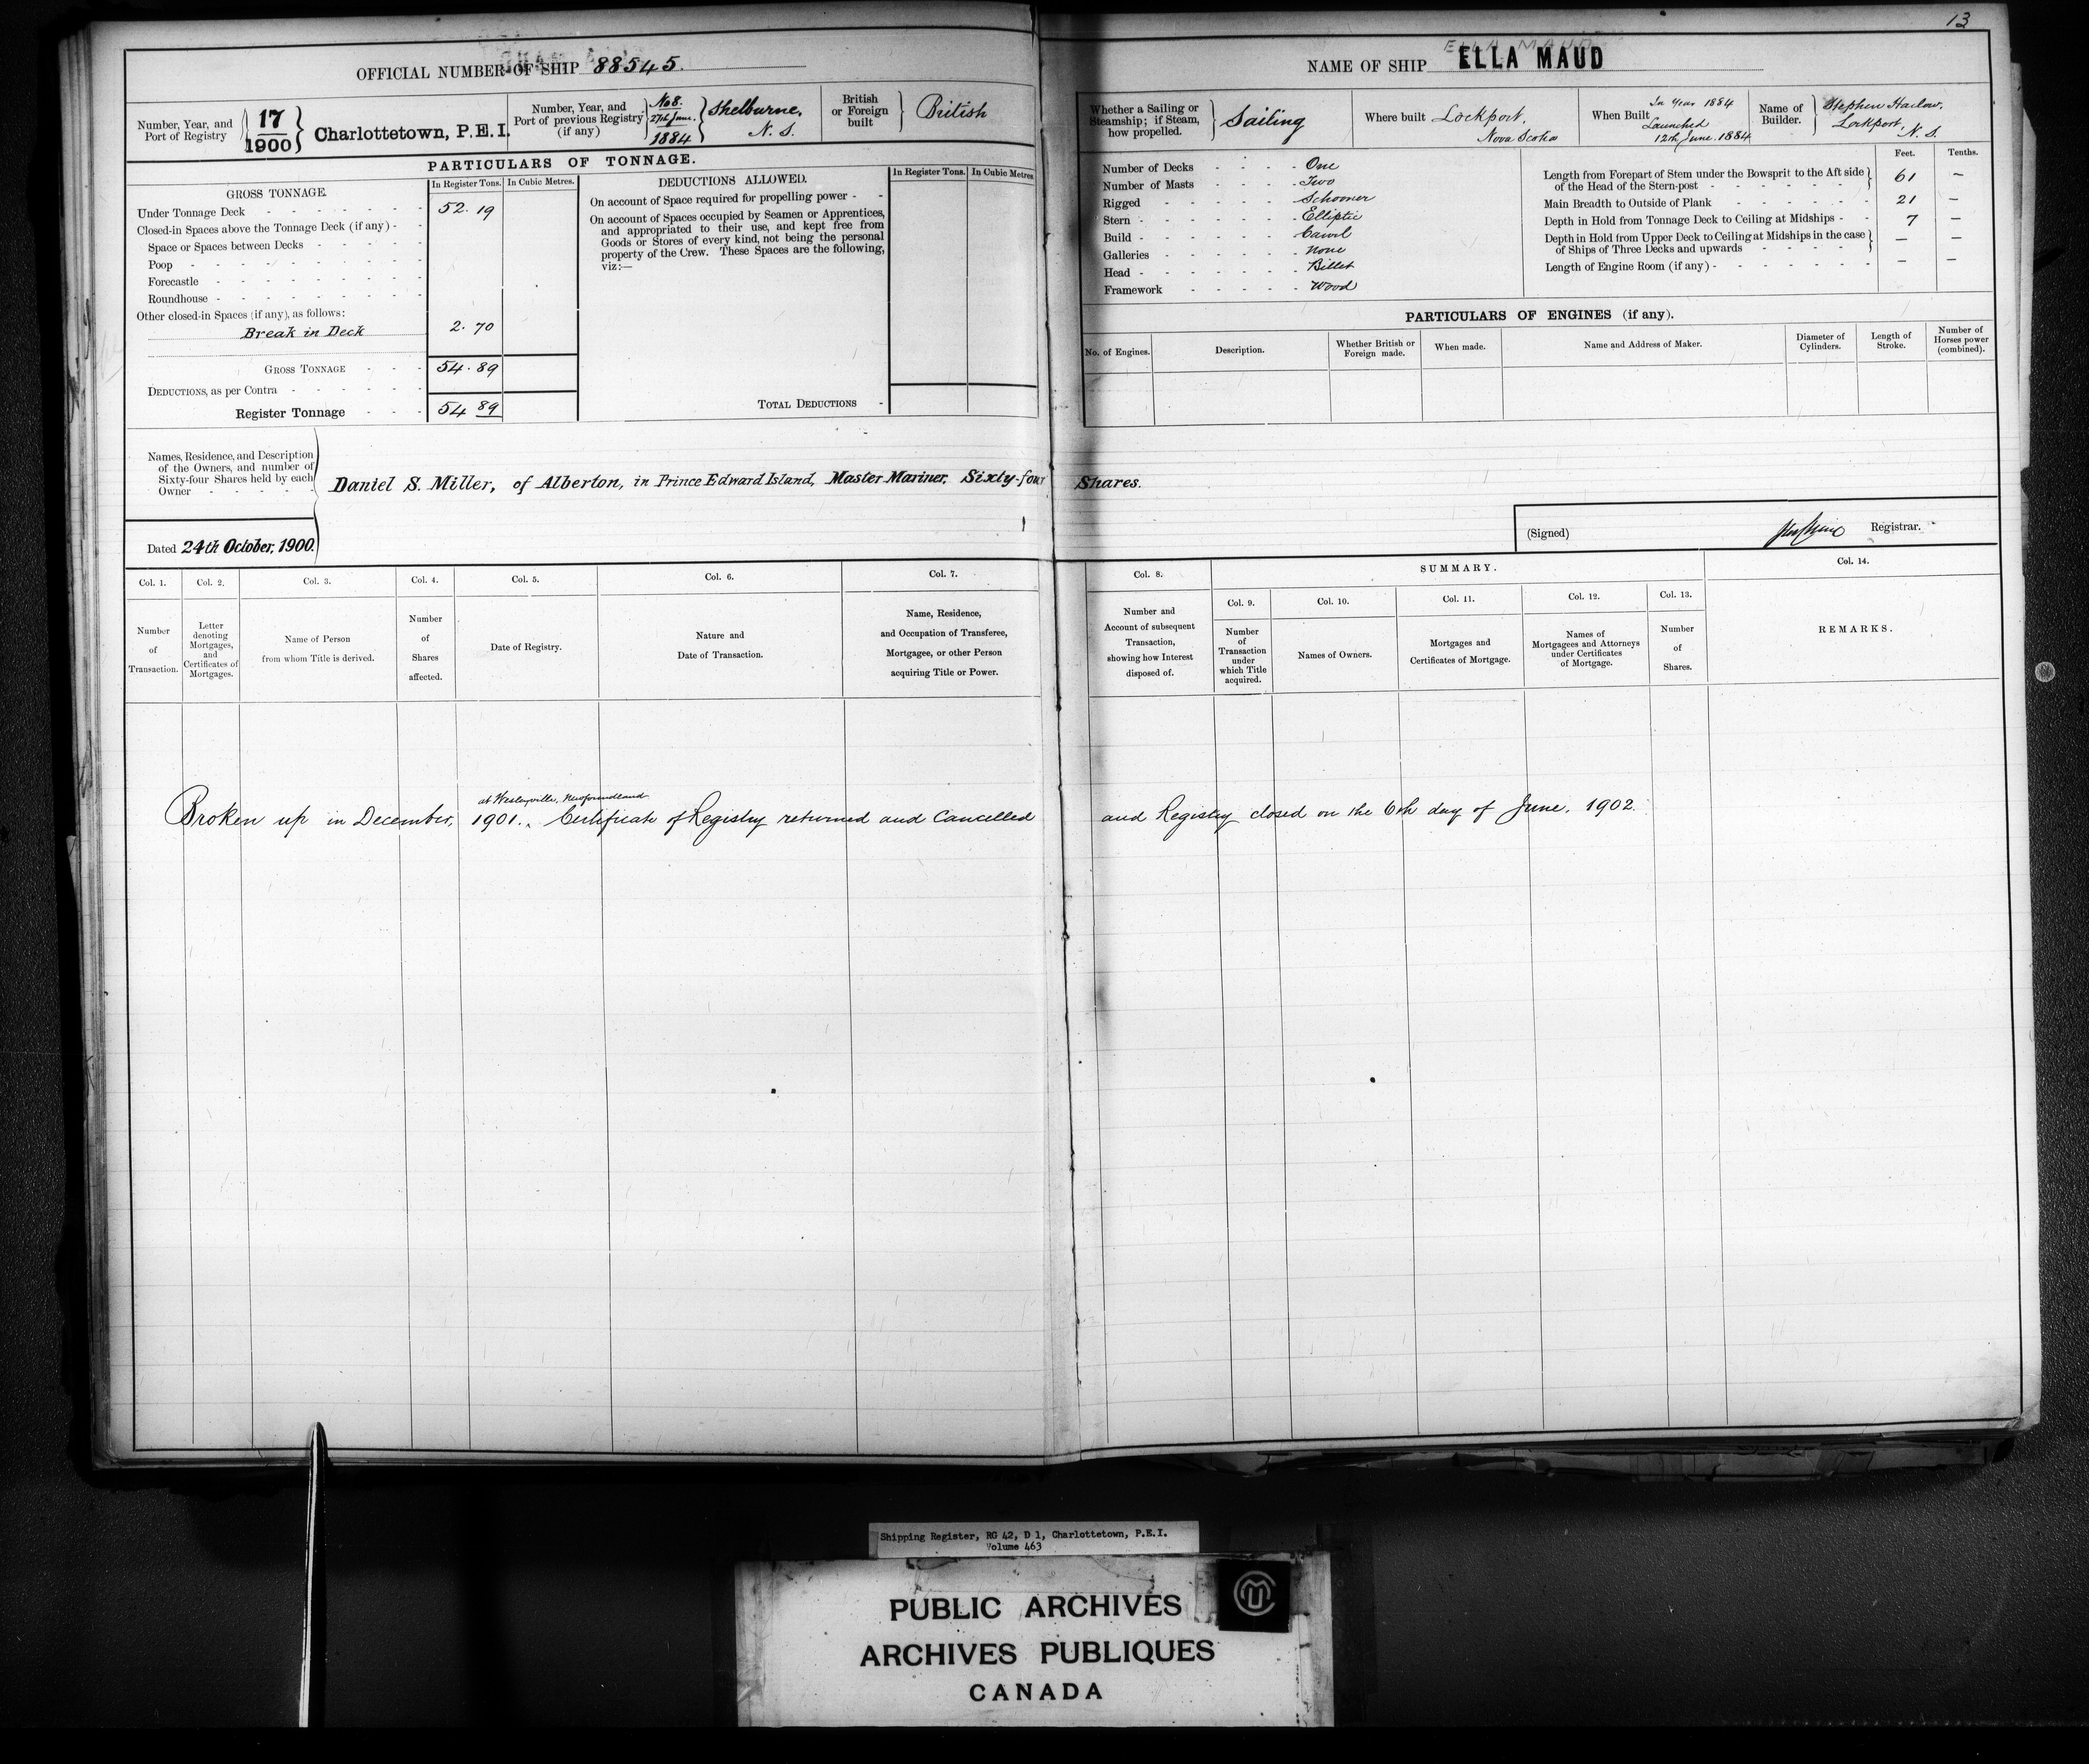 13
OFFICIAL NUMBER OF SHIP 88545.
Number, Year, and Port of Registry 17/1900 Charlottetown, P.E.I.
Number, Year, and Port of previous Registry (if any) No 8. 27th June. 1884 Shelburne, N. S.
British or Foreign built British
PARTICULARS OF TONNAGE.
GROSS TONNAGE. In Register Tons. In Cubic Metres.
Under Tonnage Deck 52.19
Closed-in Spaces above the Tonnage Deck (if any) -
Space or Spaces between Decks
Poop
Forecastle
Roundhouse
Other closed-in Spaces (if any), as follows:
Break in Deck 2.70
GROSS TONNAGE 54.89
DEDUCTIONS, as per Contra
Register Tonnage 54 89
DEDUCTIONS ALLOWED. In Register Tons. In Cubic Metres
On account of Space required for propelling power -
On account of Spaces occupied by Seamen or Apprentices,
and appropriated to their use, and kept free from
Goods or Stores of every kind, not being the personal
property of the Crew. These Spaces are the following,
viz:—
TOTAL DEDUCTIONS
NAME OF SHIP ELLA MAUD
Whether a Sailing or Steamship; if Steam, how propelled. Sailing
Where built Lockport, Nova Scotia
When Built In Year 1884 Launched 12th June. 1884
Name of Builder. Stephen Harlow, Lockport, N. S.
Number of Decks One
Number of Masts Two
Rigged Schooner
Stern Elliptic
Build Carvil
Galleries None
Head Billet
Framework Wood
Feet. Tenths.
Length from Forepart of Stem under the Bowsprit to the Aft side of the Head of the Stern-post 61 —
Main Breadth to Outside of Plank 21 —
Depth in Hold from Tonnage Deck to Ceiling at Midships 7 —
Depth in Hold from Upper Deck to Ceiling at Midships in the case of Ships of Three Decks and upwards — —
Length of Engine Room (if any) — —
PARTICULARS OF ENGINES (if any).
No. of Engines. Description. Whether British or Foreign made. When made. Name and Address of Maker. Diameter of Cylinders. Length of Stroke. Number of Horses power (combined).
Names, Residence, and Description
of the Owners, and number of
Sixty-four Shares held by each
Owner
Daniel S. Miller, of Alberton, in Prince Edward Island, Master Mariner, Sixty-four Shares.
Dated 24th October, 1900.
(Signed) Registrar.
Col. 1. Number of Transaction.
Col. 2. Letter denoting Mortgages, and Certificates of Mortgages.
Col. 3. Name of Person from whom Title is derived.
Col. 4. Number of Shares affected.
Col. 5. Date of Registry.
Col. 6. Nature and Date of Transaction.
Col. 7. Name, Residence, and Occupation of Transferee, Mortgagee, or other Person acquiring Title or Power.
Col. 8. Number and Account of subsequent Transaction, showing how Interest disposed of.
SUMMARY.
Col. 9. Number of Transaction under which Title acquired.
Col. 10. Names of Owners.
Col. 11. Mortgages and Certificates of Mortgage.
Col. 12. Names of Mortgagees and Attorneys under Certificates of Mortgage.
Col. 13. Number of Shares.
Col. 14. REMARKS.
at Wesleyville, Newfoundland
Broken up in December, 1901. Certificate of Registry returned and Cancelled and Registry closed on the 6th day of June, 1902.
Shipping Register, RG 42, D 1, Charlottetown, P.E.I.
Volume 463
PUBLIC ARCHIVES
ARCHIVES PUBLIQUES
CANADA